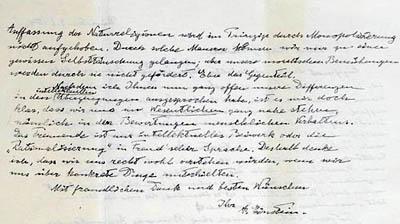 Auffassung der Naturreligionen wird im Prinzip durch Monopolisierung
nicht aufgehoben. Durch solche Mauern können wir nur zu einer
gewissen Selbsttäuschung gelangen, aber unsere moralischen Bemühungen
werden durch sie nicht gefördert. Eher das Gegenteil.
Nachdem ich Ihnen nun ganz offen unsere Differenzen
in den intellektuellen Überzeugungen ausgesprochen habe, ist es mir doch
klar, dass wir uns im Wesentlichen ganz nahe stehen,
nämlich in den Bewertungen menschlichen Verhaltens.
Das Trennende ist nur intellektuelles Beiwerk oder die
"Rationalisierung" in Freud'scher Sprache. Deshalb denke
ich, dass wir uns recht wohl verstehen würden, wenn wir
uns über konkrete Dinge unterhielten.
Mit freundlichem Dank und besten Wünschen
Ihr A. Einstein.